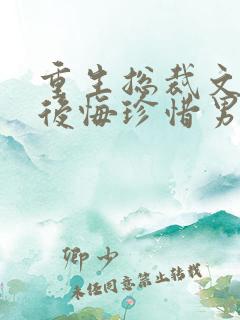 重生总裁文
後悔珍惜男
卿少
未经同意禁止转载